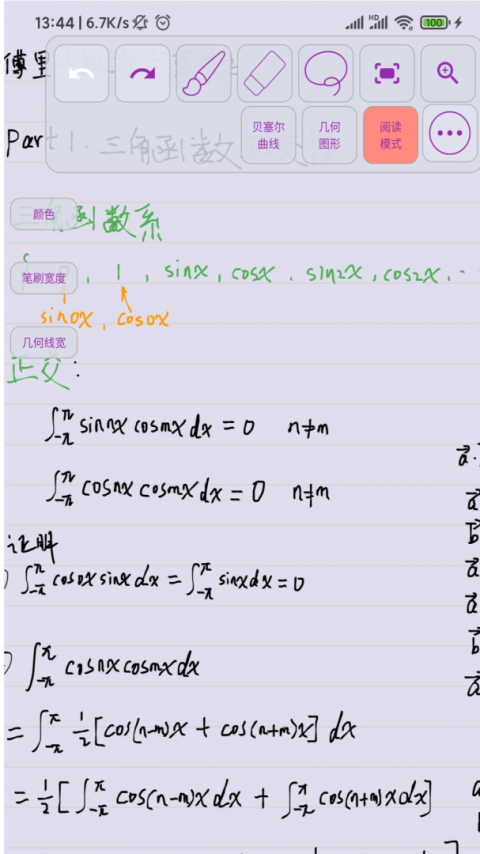 13:44 | 6.7K/s HD 100
傅里
Part1. 三角函数
贝塞尔曲线 几何图形 阅读模式
颜色
三角函数系
笔刷宽度
, 1 , sinx , cosx , sin2x , cos2x , ..
sin0x , cos0x
几何线宽
正交 :
∫_{-π}^{π} sinnx cosmx dx = 0 n≠m
∫_{-π}^{π} cosnx cosmx dx = 0 n≠m
证明
) ∫_{-π}^{π} cos0x sinx dx = ∫_{-π}^{π} sinx dx = 0
) ∫_{-π}^{π} cosnx cosmx dx
= ∫_{-π}^{π} 1/2 [cos(n-m)x + cos(n+m)x] dx
= 1/2 [ ∫_{-π}^{π} cos(n-m)x dx + ∫_{-π}^{π} cos(n+m)x dx]
a⃗ ·
a⃗
b⃗
a⃗
a⃗
b⃗
a⃗